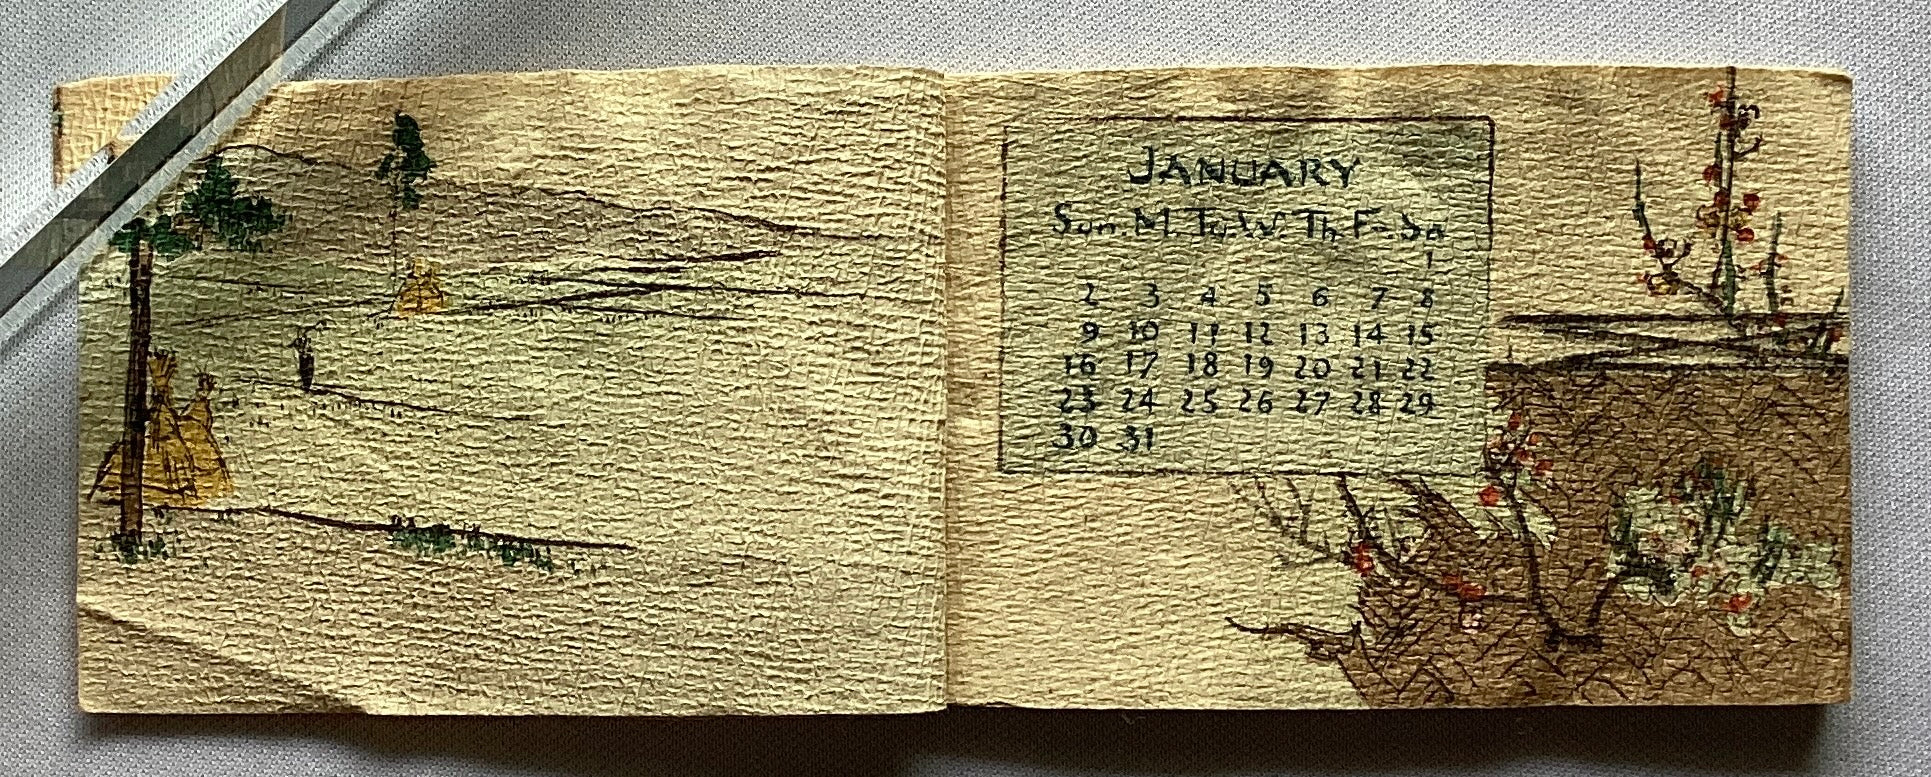 JANUARY
Sun. M. Tu. W. Th. F. Sa
1
2 3 4 5 6 7 8
9 10 11 12 13 14 15
16 17 18 19 20 21 22
23 24 25 26 27 28 29
30 31